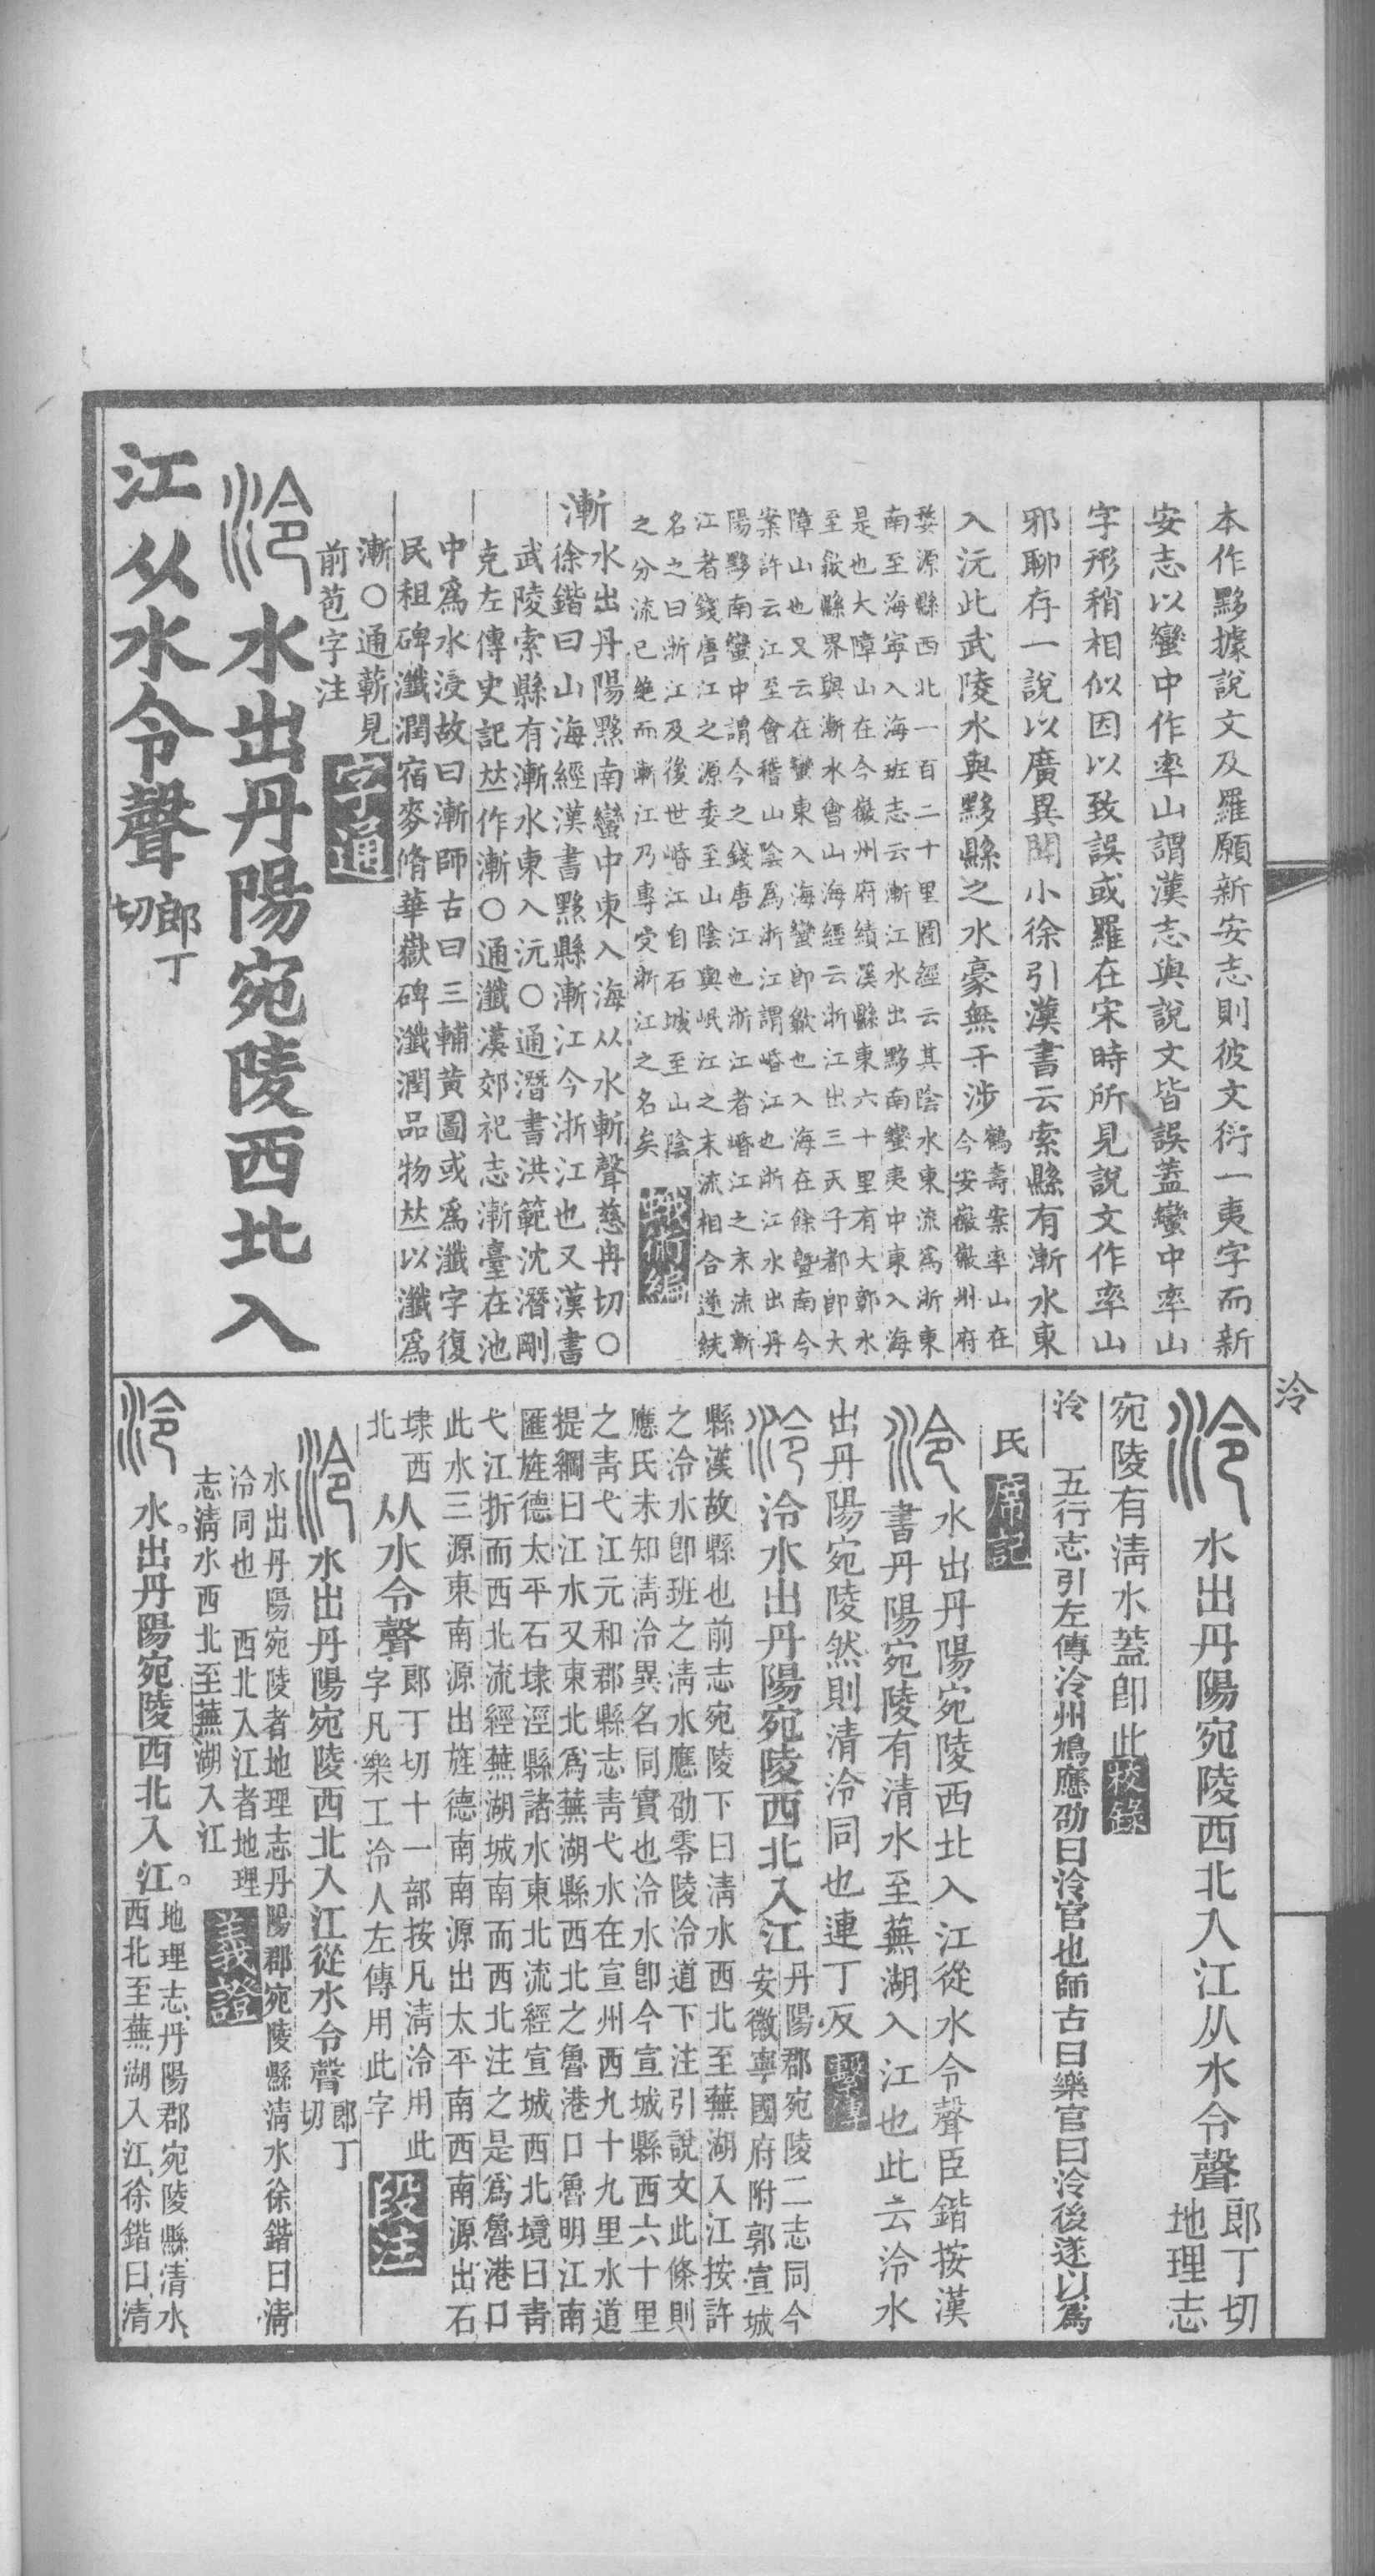 本作黟據說文及羅願新安志則彼文衍一夷字而新
安志以蠻中作率山謂漢志與說文皆誤蓋蠻中率山
字形稍相似因以致誤或羅在宋時所見說文作率山
邪聊存一說以廣異聞小徐引漢書云索縣有漸水東
入沅此武陵水與黟縣之水豪無干涉
鶴壽案率山在
今安徽徽州府
婺源縣西北一百二十里圖經云其陰水東流為浙東
南至海寧入海班志云漸江水出黟南蠻夷中東入海
是也大鄣山在今徽州府績溪縣東六十里有大鄣水
至歙縣界與漸水會山海經云浙江出三天子都即大
障山也又云在蠻東入海蠻即歙也入海在餘暨南今
案許云江至會稽山陰為浙江謂㟭江也浙江水出丹
陽黟南蠻中謂今之錢唐江也浙江者㟭江之末流漸
江者錢唐江之源委至山陰與岷江之末流相合遂統
名之曰浙江及後世㟭江自石城至山陰
之分流已絕而漸江乃專受浙江之名矣
蛾術編
漸
水出丹陽黟南蠻中東入海从水斬聲慈冉切○
徐鍇曰山海經漢書黟縣漸江今浙江也又漢書
武陵索縣有漸水東入沅○通潛書洪範沈潛剛
克左傳史記𠀤作漸○通瀸漢郊祀志漸臺在池
中為水浸故曰漸師古曰三輔黃圖或為瀸字復
民租碑瀸潤宿麥脩華嶽碑瀸潤品物𠀤以瀸為
漸○通蔪見
前苞字注
字通
泠水出丹陽宛陵西北入
江从水令聲
郎丁
切
泠
泠水出丹陽宛陵西北入江从水令聲
郎丁切
地理志
宛陵有清水蓋即此
校錄
泠
五行志引左傳泠州鳩應劭曰泠官也師古曰樂官曰泠後遂以為
氏
席記
泠水出丹陽宛陵西北入江從水令聲臣鍇按漢
書丹陽宛陵有清水至蕪湖入江也此云泠水
出丹陽宛陵然則清泠同也連丁反
繫傳
泠泠水出丹陽宛陵西北入江
丹陽郡宛陵二志同今
安徽寧國府附郭宣城
縣漢故縣也前志宛陵下曰清水西北至蕪湖入江按許
之泠水即班之清水應劭零陵泠道下注引說文此條則
應氏未知清泠異名同實也泠水即今宣城縣西六十里
之青弋江元和郡縣志青弋水在宣州西九十九里水道
提綱曰江水又東北為蕪湖縣西北之魯港口魯明江南
匯旌德太平石埭涇縣諸水東北流經宣城西北境曰青
弋江折而西北流經蕪湖城南而西北注之是為魯港口
此水三源東南源出旌德南南源出太平南西南源出石
埭西
北
从水令聲
郎丁切十一部按凡清泠用此
字凡樂工泠人左傳用此字
段注
泠水出丹陽宛陵西北入江從水令聲
郎丁
切
水出丹陽宛陵者地理志丹陽郡宛陵縣清水徐鍇曰清
泠同也　西北入江者地理
志清水西北至蕪湖入江
義證
泠水出丹陽宛陵西北入江。
地理志丹陽郡宛陵縣清水、
西北至蕪湖入江、徐鍇曰、清